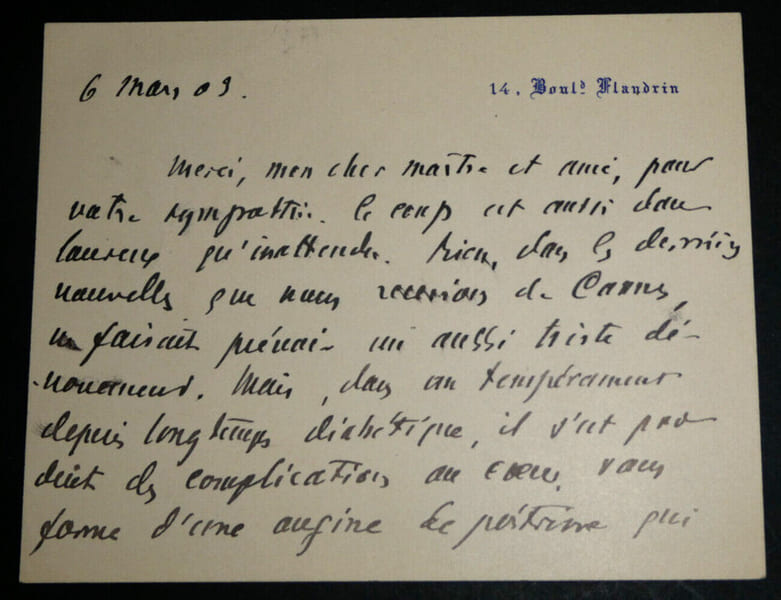 6 Mars 09.
14, Boulᵈ Flandrin
Merci, mon cher maître et ami, pour
votre sympathie. Le coup est aussi dou
loureux qu'inattendu. Rien, dans les dernières
nouvelles que nous recevions de Cannes,
ne faisait prévoir un aussi triste dé-
nouement. Mais, dans un tempérament
depuis longtemps diabétique, il s'est pro
duit des complications au coeur, sous
forme d'une angine de poitrine qui